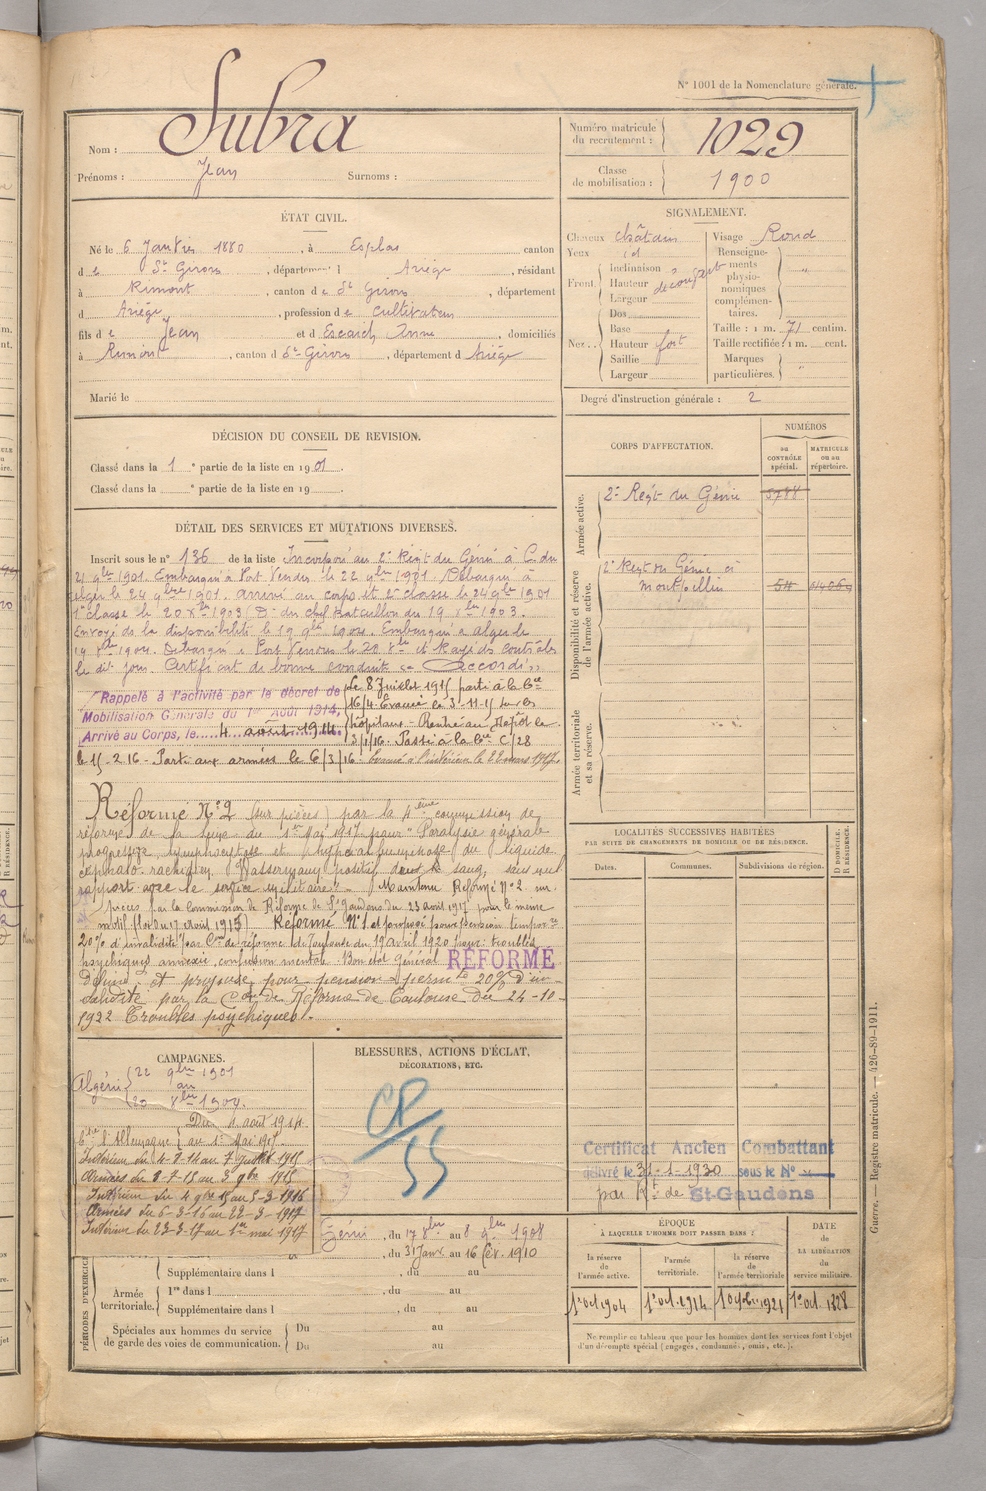 N° 1001 de la Nomenclature générale.
Nom : Subra
Prénoms : Jean Surnoms :
Numéro matricule du recrutement : 1029
Classe de mobilisation : 1900
ÉTAT CIVIL.
Né le 6 Janvier 1880, à Esplas canton
de St Girons, département Ariège, résidant
à Rimont, canton de St Girons, département
d Ariège, profession de Cultivateur
fils de Jean et d Escaich Anne domiciliés
à Rimont, canton d St Girons, département d Ariège
Marié le
SIGNALEMENT.
Cheveux châtain
Yeux id
Front
Inclinaison
Hauteur découvert
Largeur
Nez
Dos
Base
Hauteur fort
Saillie
Largeur
Visage Rond
Renseignements physionomiques complémentaires. "
Taille : 1 m. 71 centim.
Taille rectifiée : 1 m. cent.
Marques particulières. "
Degré d'instruction générale : 2
DÉCISION DU CONSEIL DE REVISION.
Classé dans la 1e partie de la liste en 1901.
Classé dans la e partie de la liste en 19
DÉTAIL DES SERVICES ET MUTATIONS DIVERSES.
Inscrit sous le n° 136 de la liste Incorporé au 2e Régt du Génie à C. du
21 9bre 1901. Embarqué à Port Vendres le 22 9bre 1901. Débarqué à
Alger le 24 9bre 1901. Arrivé au corps et 2e classe le 24 9bre 1901
1e classe le 20 Xbre 1903 D. du chef Bataillon du 19 Xbre 1903.
Envoyé dans la disponibilité le 19 9bre 1904. Embarqué à Alger le
19 8bre 1904. Débarqué à Port Vendres le 20 8bre et Rayé des contrôles
le dit jour. Certificat de bonne conduite "Accordé"
Rappelé à l'activité par le décret de
Mobilisation Générale du 1er Août 1914,
Arrivé au Corps, le 4 août 1914
Le 8 Juillet 1915 parti à la Cie
16/4 Evacué le 3-11-15 sur les
hôpitaux - Rentré au Dépôt le
3/1/16. Passé à la Cie C/28
le 15-2 16 - Parti aux armées le 6/3/16. Evacué à l'intérieur le 22 mars 1917.
Réformé N° 2 (sur pièces) par la 4ème commission de
réforme de la Seine du 1er Mai 1917 pour "Paralysie générale
progressive lymphocytose et hyperalbuminose du liquide
céphalo-rachidien Wassermann positif dans le sang, sans nul
rapport avec le service militaire". Maintenu Réformé N° 2 sur
pièces par la Commission de Réforme de St Gaudens du 23 août 1917 pour le même
motif (loi du 17 août 1915) Réformé N° 1 et proposé pour pension temporre
20% d'invalidité par Con de réforme de Toulouse du 19 avril 1920 pour : troubles
psychiques anxieux, confusion mentale. Bon état général RÉFORMÉ
Définit. et proposé pour pension perm te 20% d'in-
validité par la Con de Réforme de Toulouse du 24-10-
1922 Troubles psychiques.
CORPS D'AFFECTATION.
NUMÉROS
au CONTRÔLE spécial.
MATRICULE ou au répertoire.
Armée active.
2e Régt du Génie 5784
Disponibilité et réserve de l'armée active.
2e Régt du Génie à
Montpellier 54
Armée territoriale et sa réserve.
LOCALITÉS SUCCESSIVES HABITÉES
PAR SUITE DE CHANGEMENTS DE DOMICILE OU DE RÉSIDENCE.
Dates. Communes. Subdivisions de région. D. DOMICILE. R. RÉSIDENCE.
Certificat Ancien Combattant
délivré le 31-1-1930 sous le N°
par Rt de St-Gaudens
CAMPAGNES.
Algérie
22 9bre 1901
au
20 8bre 1904.
Du 4 août 1914
Ctre l'Allemagne au 1er Mai 1917.
Intérieur du 4-8-14 au 7 Juillet 1915
Armées du 8-7-15 au 3 9bre 1915
Intérieur du 4 9bre 15 au 5-3-1916
Armées du 6-3-16 au 22-3-1917
Intérieur du 23-3-17 au 1er mai 1917
BLESSURES, ACTIONS D'ÉCLAT,
DÉCORATIONS, ETC.
CP/55
PÉRIODES D'EXERCICE
Génie, du 17 8bre au 8 9bre 1908
, du 31 Janv. au 16 Fév. 1910
Supplémentaire dans l , du au
Armée territoriale.
1re dans l , du au
Supplémentaire dans l , du au
Spéciales aux hommes du service de garde des voies de communication.
Du au
Du au
ÉPOQUE
À LAQUELLE L'HOMME DOIT PASSER DANS :
la réserve de l'armée active.
l'armée territoriale.
la réserve de l'armée territoriale
DATE de LA LIBÉRATION du service militaire.
1er oct. 1904 1er oct. 1914 1 octobre 1921 1er oct. 1928
Ne remplir ce tableau que pour les hommes dont les services font l'objet
d'un décompte spécial (engagés, condamnés, omis, etc.).
Guerre. — Registre matricule. — 426-89-1911.